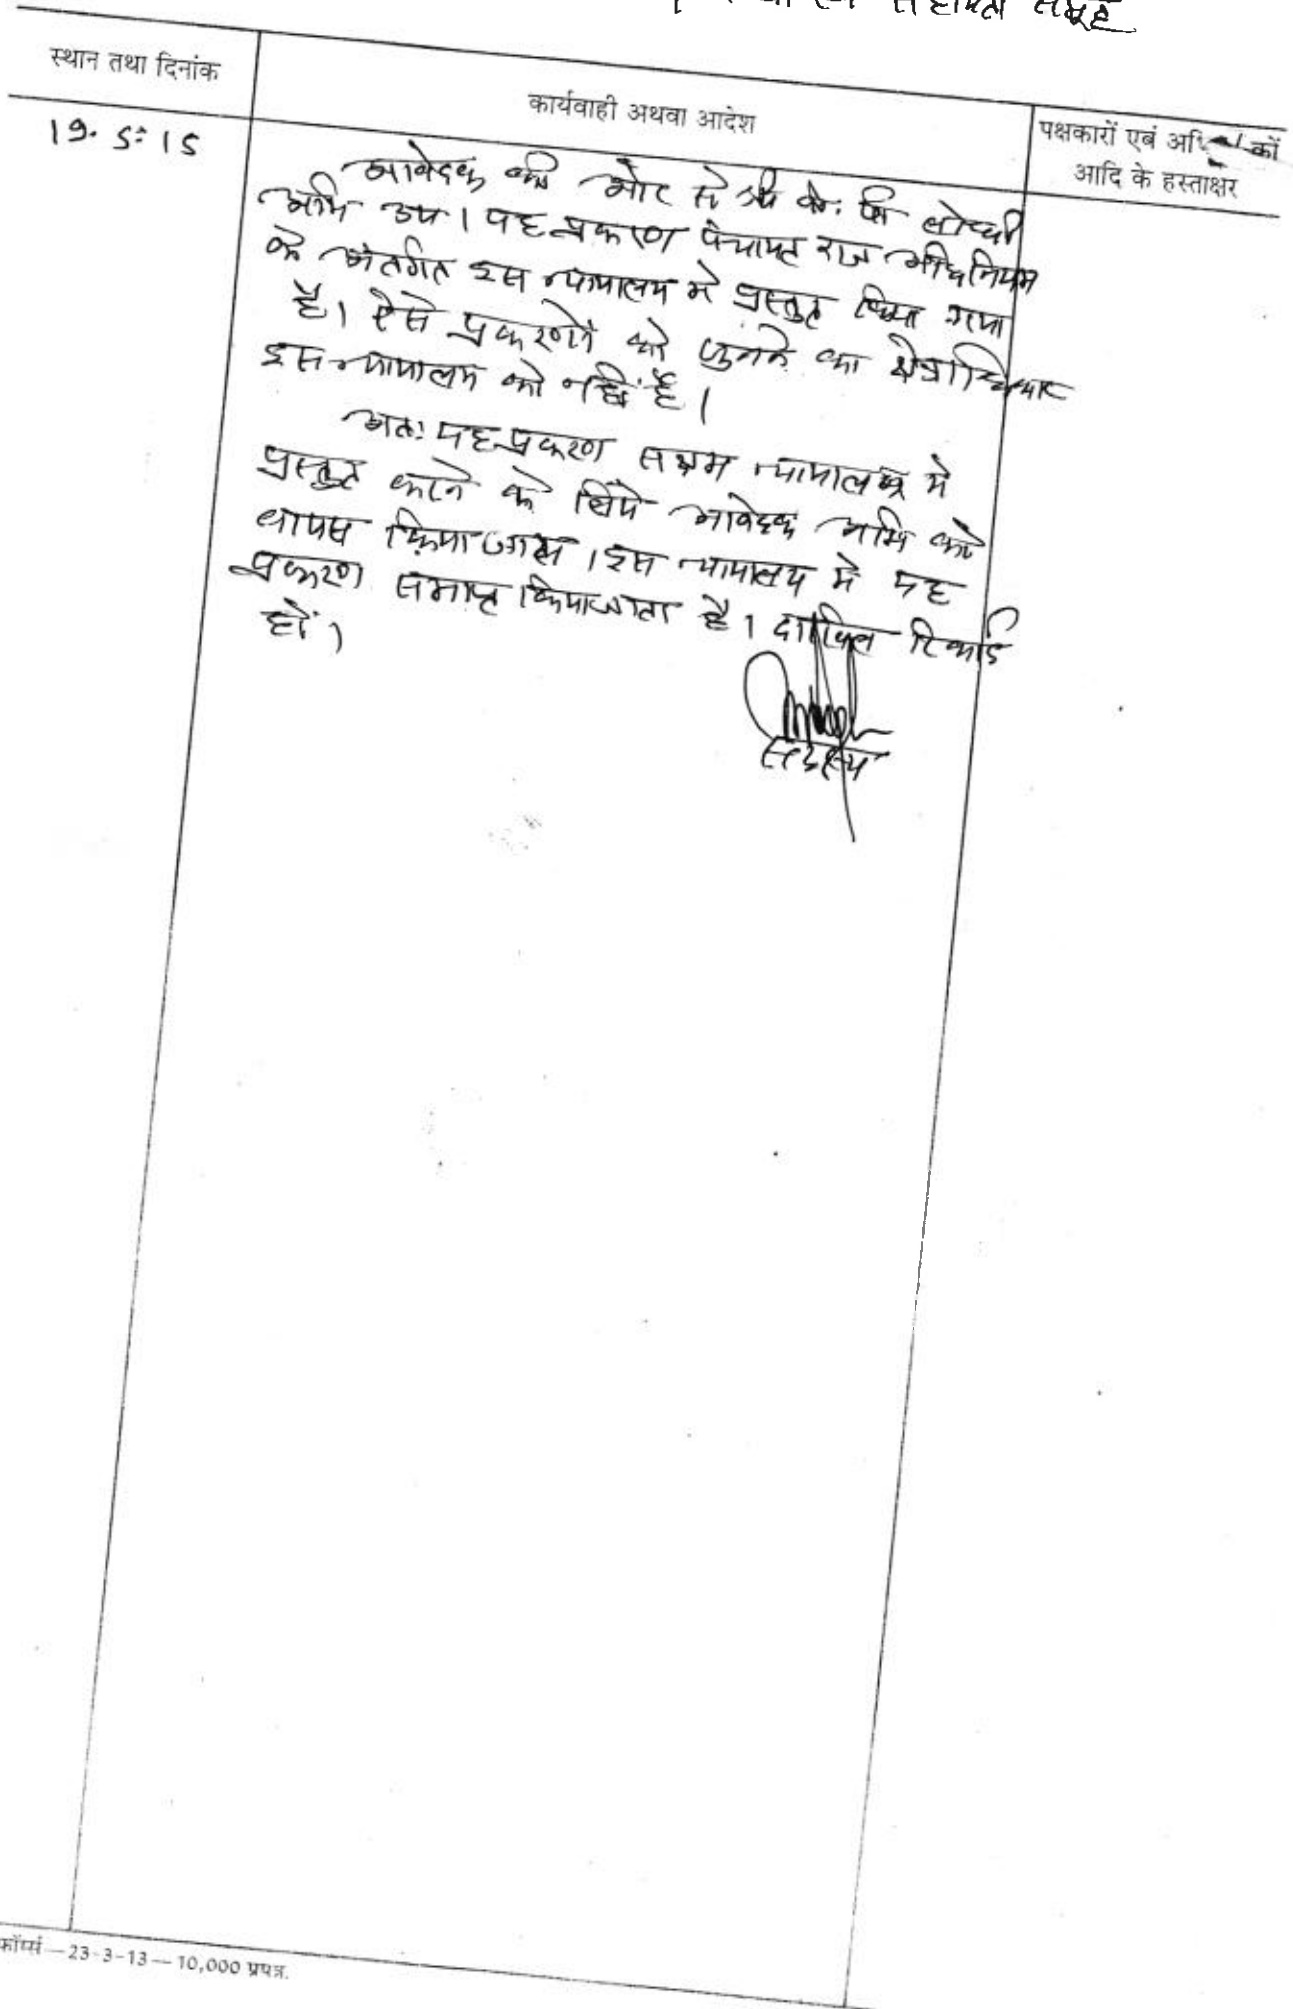 सहायता समूह
स्थान तथा दिनांक
कार्यवाही अथवा आदेश
पक्षकारों एवं अभिभाषकों
आदि के हस्ताक्षर
19.5.15
आवेदक की ओर से श्री के. पी. लोधी
अभि उप। यह प्रकरण पंचायत राज अधिनियम
के अंतर्गत इस न्यायालय में प्रस्तुत किया गया
है। ऐसे प्रकरणों को सुनने का क्षेत्राधिकार
इस न्यायालय को नहीं है।
अतः यह प्रकरण सक्षम न्यायालय में
प्रस्तुत करने के लिये आवेदक अभि को
वापस किया जाता। इस न्यायालय में यह
प्रकरण समाप्त किया जाता है। दाखिल रिकार्ड
हो।
सदस्य
फॉर्म्स—23-3-13—10,000 प्रपत्र.